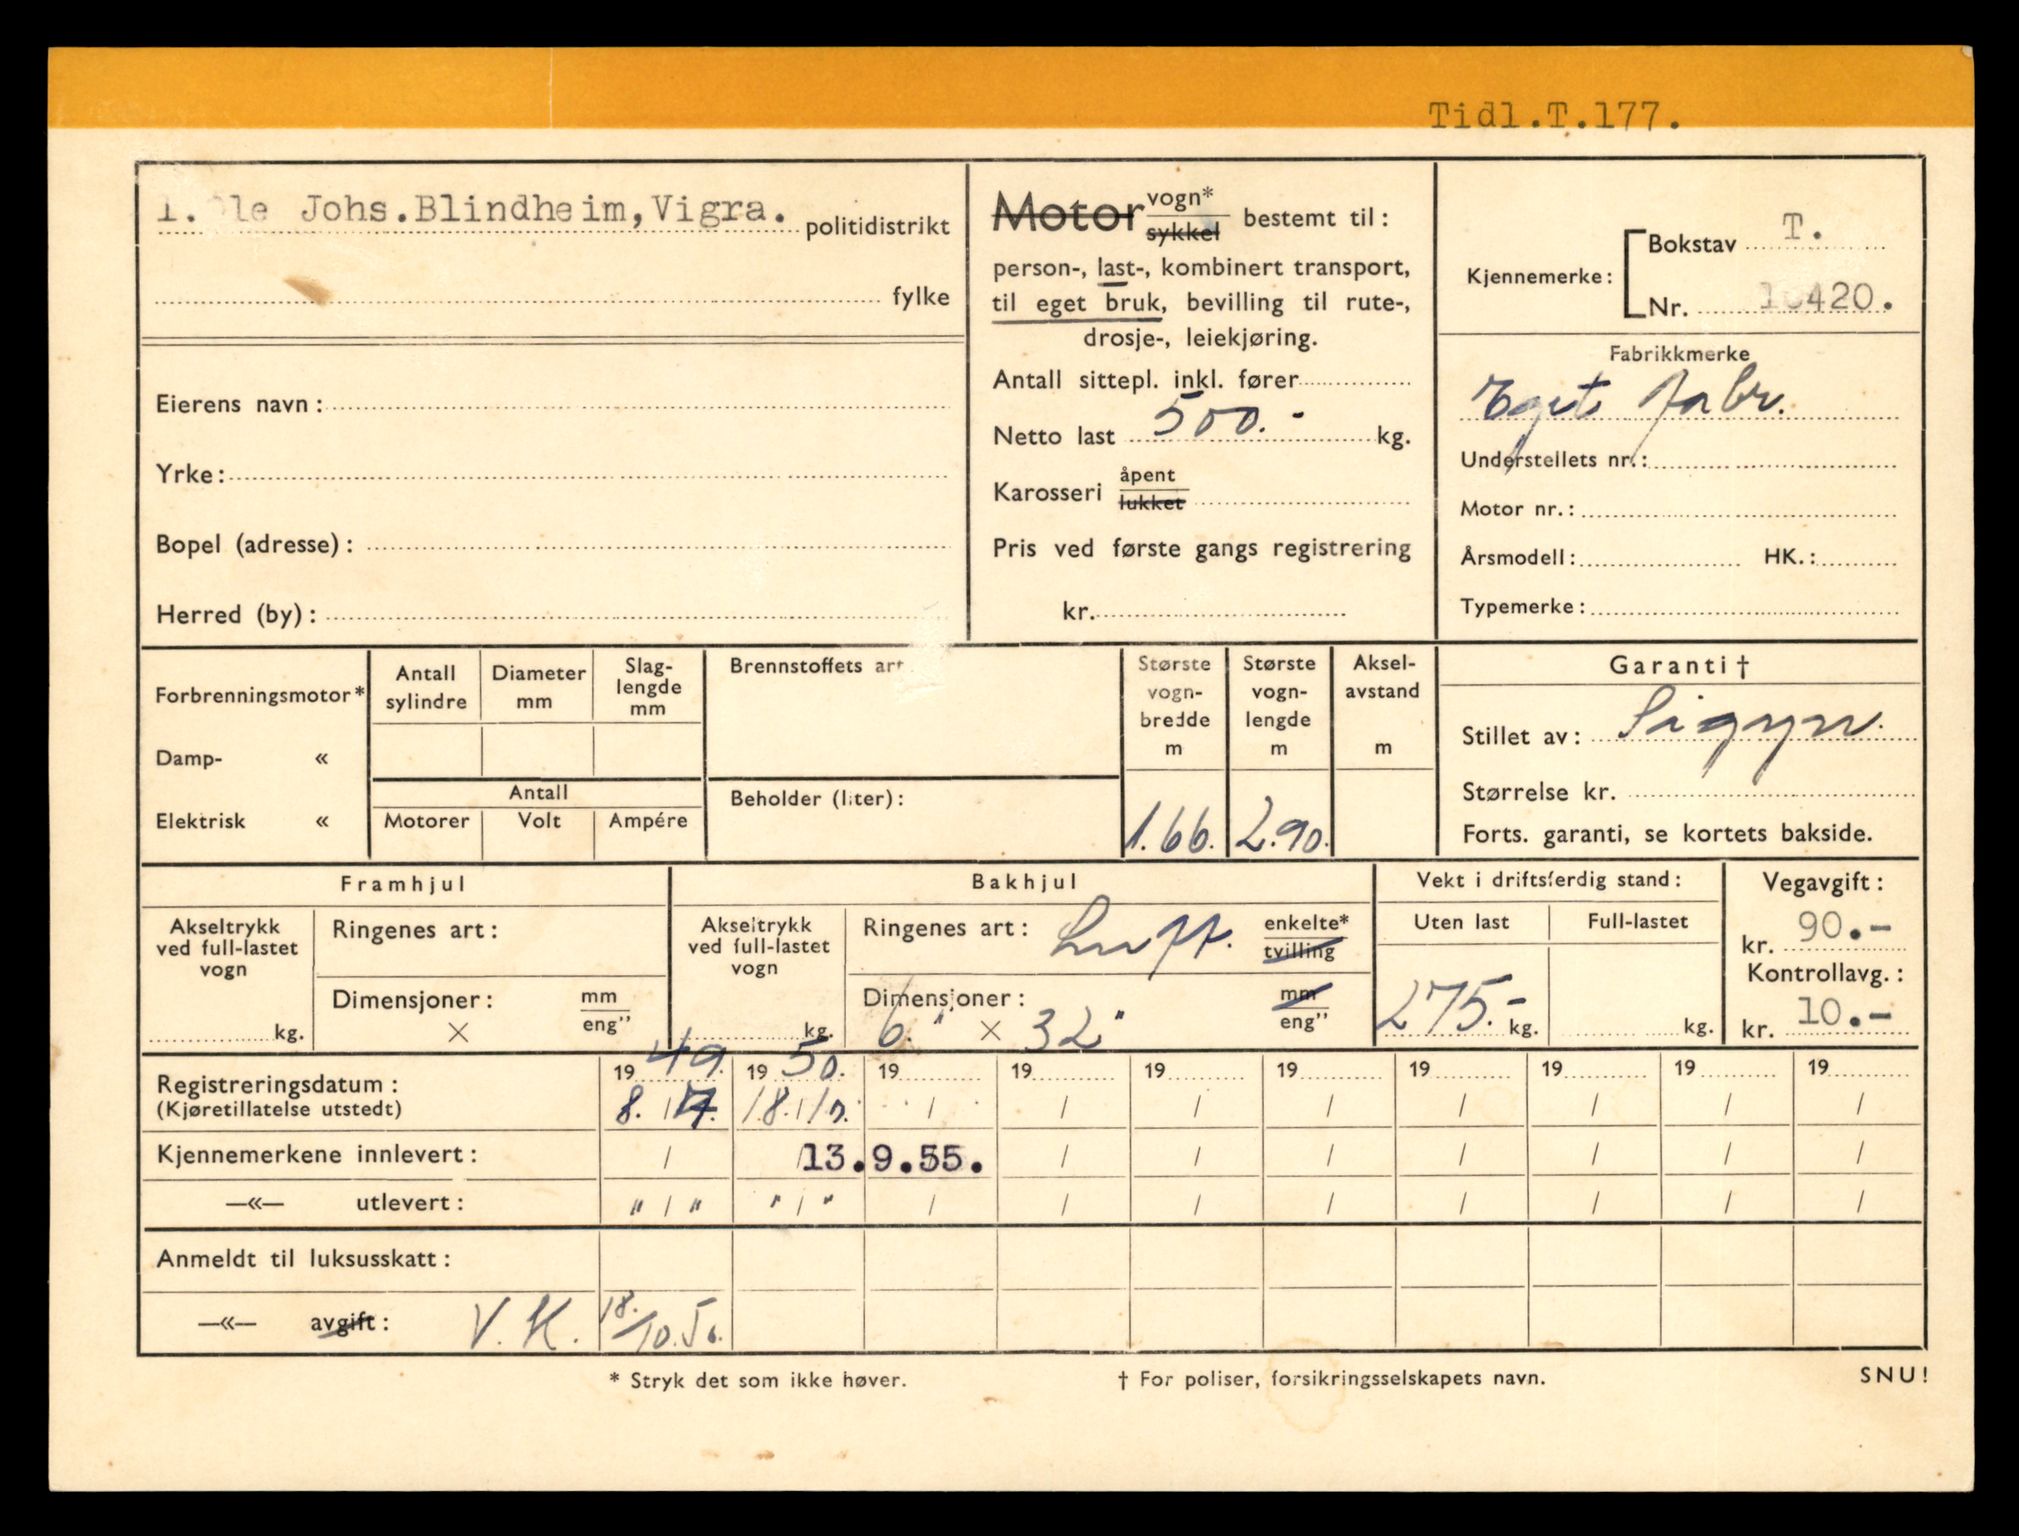 Tidl.T.177.
1. Ole Johs.Blindheim,Vigra. politidistrikt
fylke
Eierens navn:
Yrke:
Bopel (adresse):
Herred (by):
Motor vogn* sykkel bestemt til:
person-, last-, kombinert transport,
til eget bruk, bevilling til rute-,
drosje-, leiekjøring.
Antall sittepl. inkl. fører
Netto last 500.- kg.
Karosseri åpent lukket
Pris ved første gangs registrering
kr.
Kjennemerke: Bokstav T.
Nr. 10420.
Fabrikkmerke
Eget fabr.
Understellets nr.:
Motor nr.:
Årsmodell: HK.:
Typemerke:
Forbrenningsmotor*
Damp- «
Elektrisk «
Antall sylindre
Diameter mm
Slag-lengde mm
Antall
Motorer Volt Ampére
Brennstoffets art
Beholder (liter):
Største vogn-bredde m
1.66.
Største vogn-lengde m
2.90.
Aksel-avstand m
Garanti†
Stillet av: Sigyn.
Størrelse kr.
Forts. garanti, se kortets bakside.
Framhjul
Akseltrykk ved full-lastet vogn
kg.
Ringenes art:
Dimensjoner: mm eng”
×
Bakhjul
Akseltrykk ved full-lastet vogn
kg.
Ringenes art: Luft. enkelte* tvilling
Dimensjoner: mm eng”
6." × 32"
Vekt i driftsferdig stand:
Uten last Full-lastet
275.- kg. kg.
Vegavgift:
kr. 90.-
Kontrollavg.:
kr. 10.-
Registreringsdatum: 1949. 1950. 19 19 19 19 19 19 19 19
(Kjøretillatelse utstedt) 8./7. 18./10. / / / / / / / /
Kjennemerkene innlevert: / /13.9.55. / / / / / / /
—«— utlevert: " / " " / " / / / / / / / /
Anmeldt til luksusskatt:
—«— avgift: V.K. 18./10.50.
* Stryk det som ikke høver.
† For poliser, forsikringsselskapets navn.
SNU!